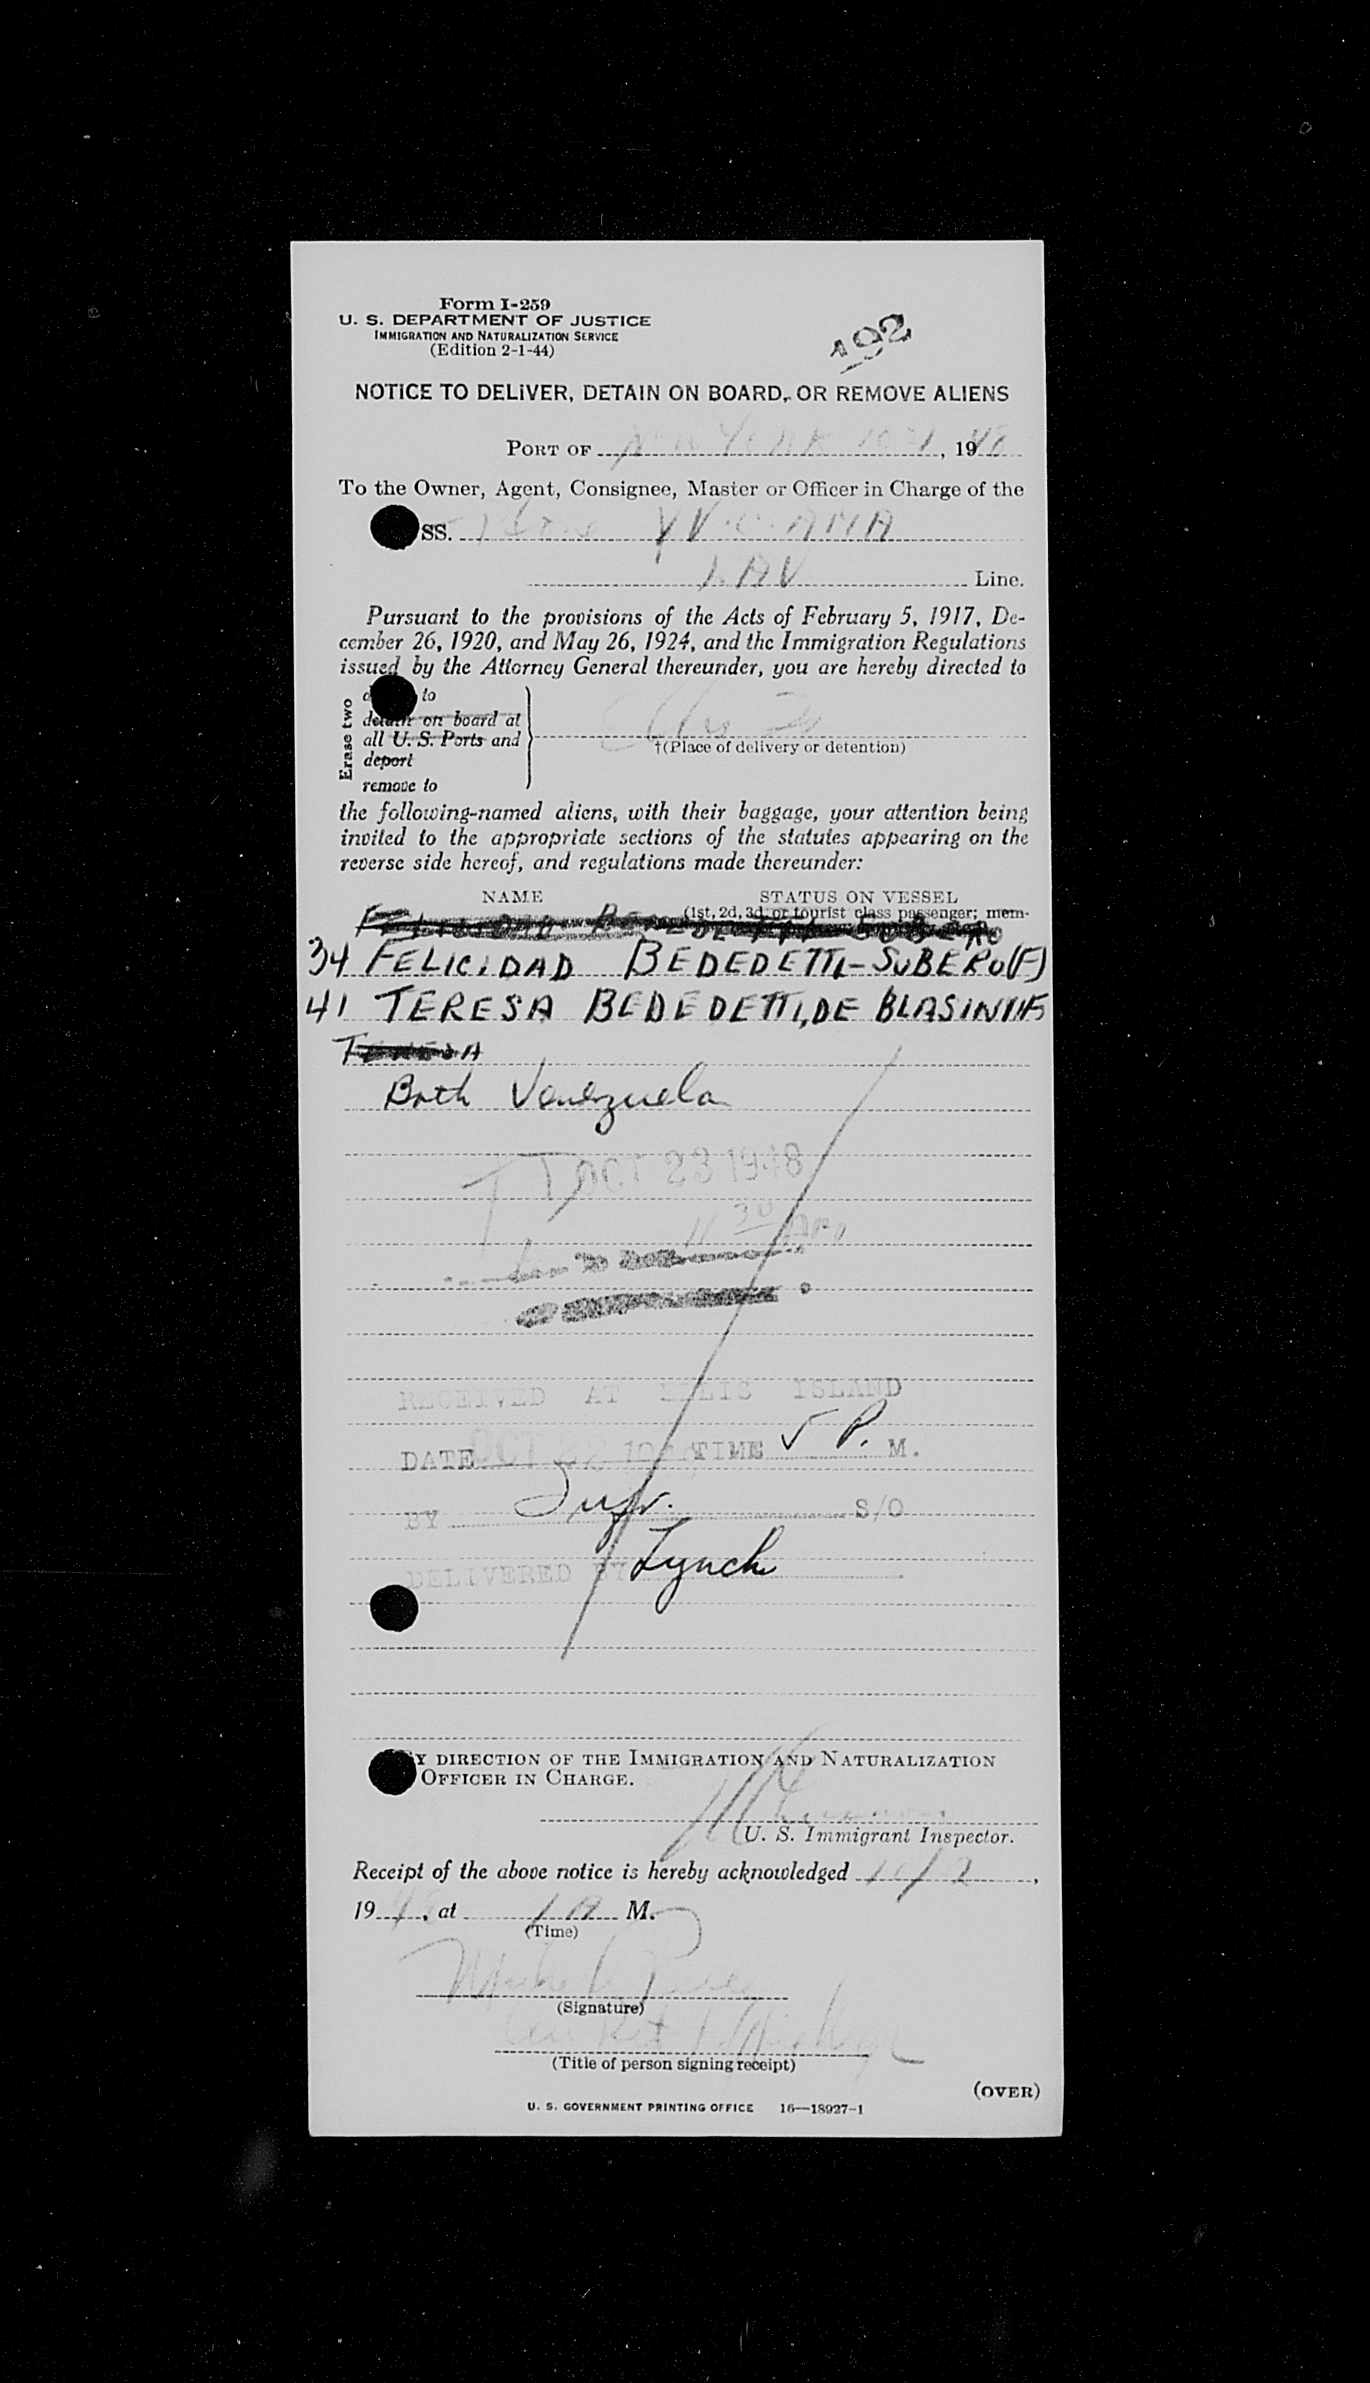 Form I-259
U. S. DEPARTMENT OF JUSTICE
IMMIGRATION AND NATURALIZATION SERVICE
(Edition 2-1-44)
192
NOTICE TO DELIVER, DETAIN ON BOARD, OR REMOVE ALIENS
PORT OF New York 10 21, 1948
To the Owner, Agent, Consignee, Master or Officer in Charge of the
SS. Plane YV-C-AMA
LAV Line.
Pursuant to the provisions of the Acts of February 5, 1917, De-
cember 26, 1920, and May 26, 1924, and the Immigration Regulations
issued by the Attorney General thereunder, you are hereby directed to
Erase two
to
detain on board at
all U. S. Ports and
deport
remove to
Ellis Is
†(Place of delivery or detention)
the following-named aliens, with their baggage, your attention being
invited to the appropriate sections of the statutes appearing on the
reverse side hereof, and regulations made thereunder:
NAME STATUS ON VESSEL
(1st, 2d, 3d, or tourist class passenger; mem-
34 FELICIDAD BEDEDETTI-SUBERO (F)
41 TERESA BEDEDETTI, DE BLASINI
TERESA
Both Venezuela
OCT 23 1948
11 30
RECEIVED AT ELLIS ISLAND
DATE OCT 22 19 TIME 5 P. M.
BY S/O
DELIVERED BY Lynch
Y DIRECTION OF THE IMMIGRATION AND NATURALIZATION
OFFICER IN CHARGE.
U. S. Immigrant Inspector.
Receipt of the above notice is hereby acknowledged 10/2,
19 4, at 1 A M.
(Time)
(Signature)
(Title of person signing receipt)
(OVER)
U. S. GOVERNMENT PRINTING OFFICE 16—18927-1